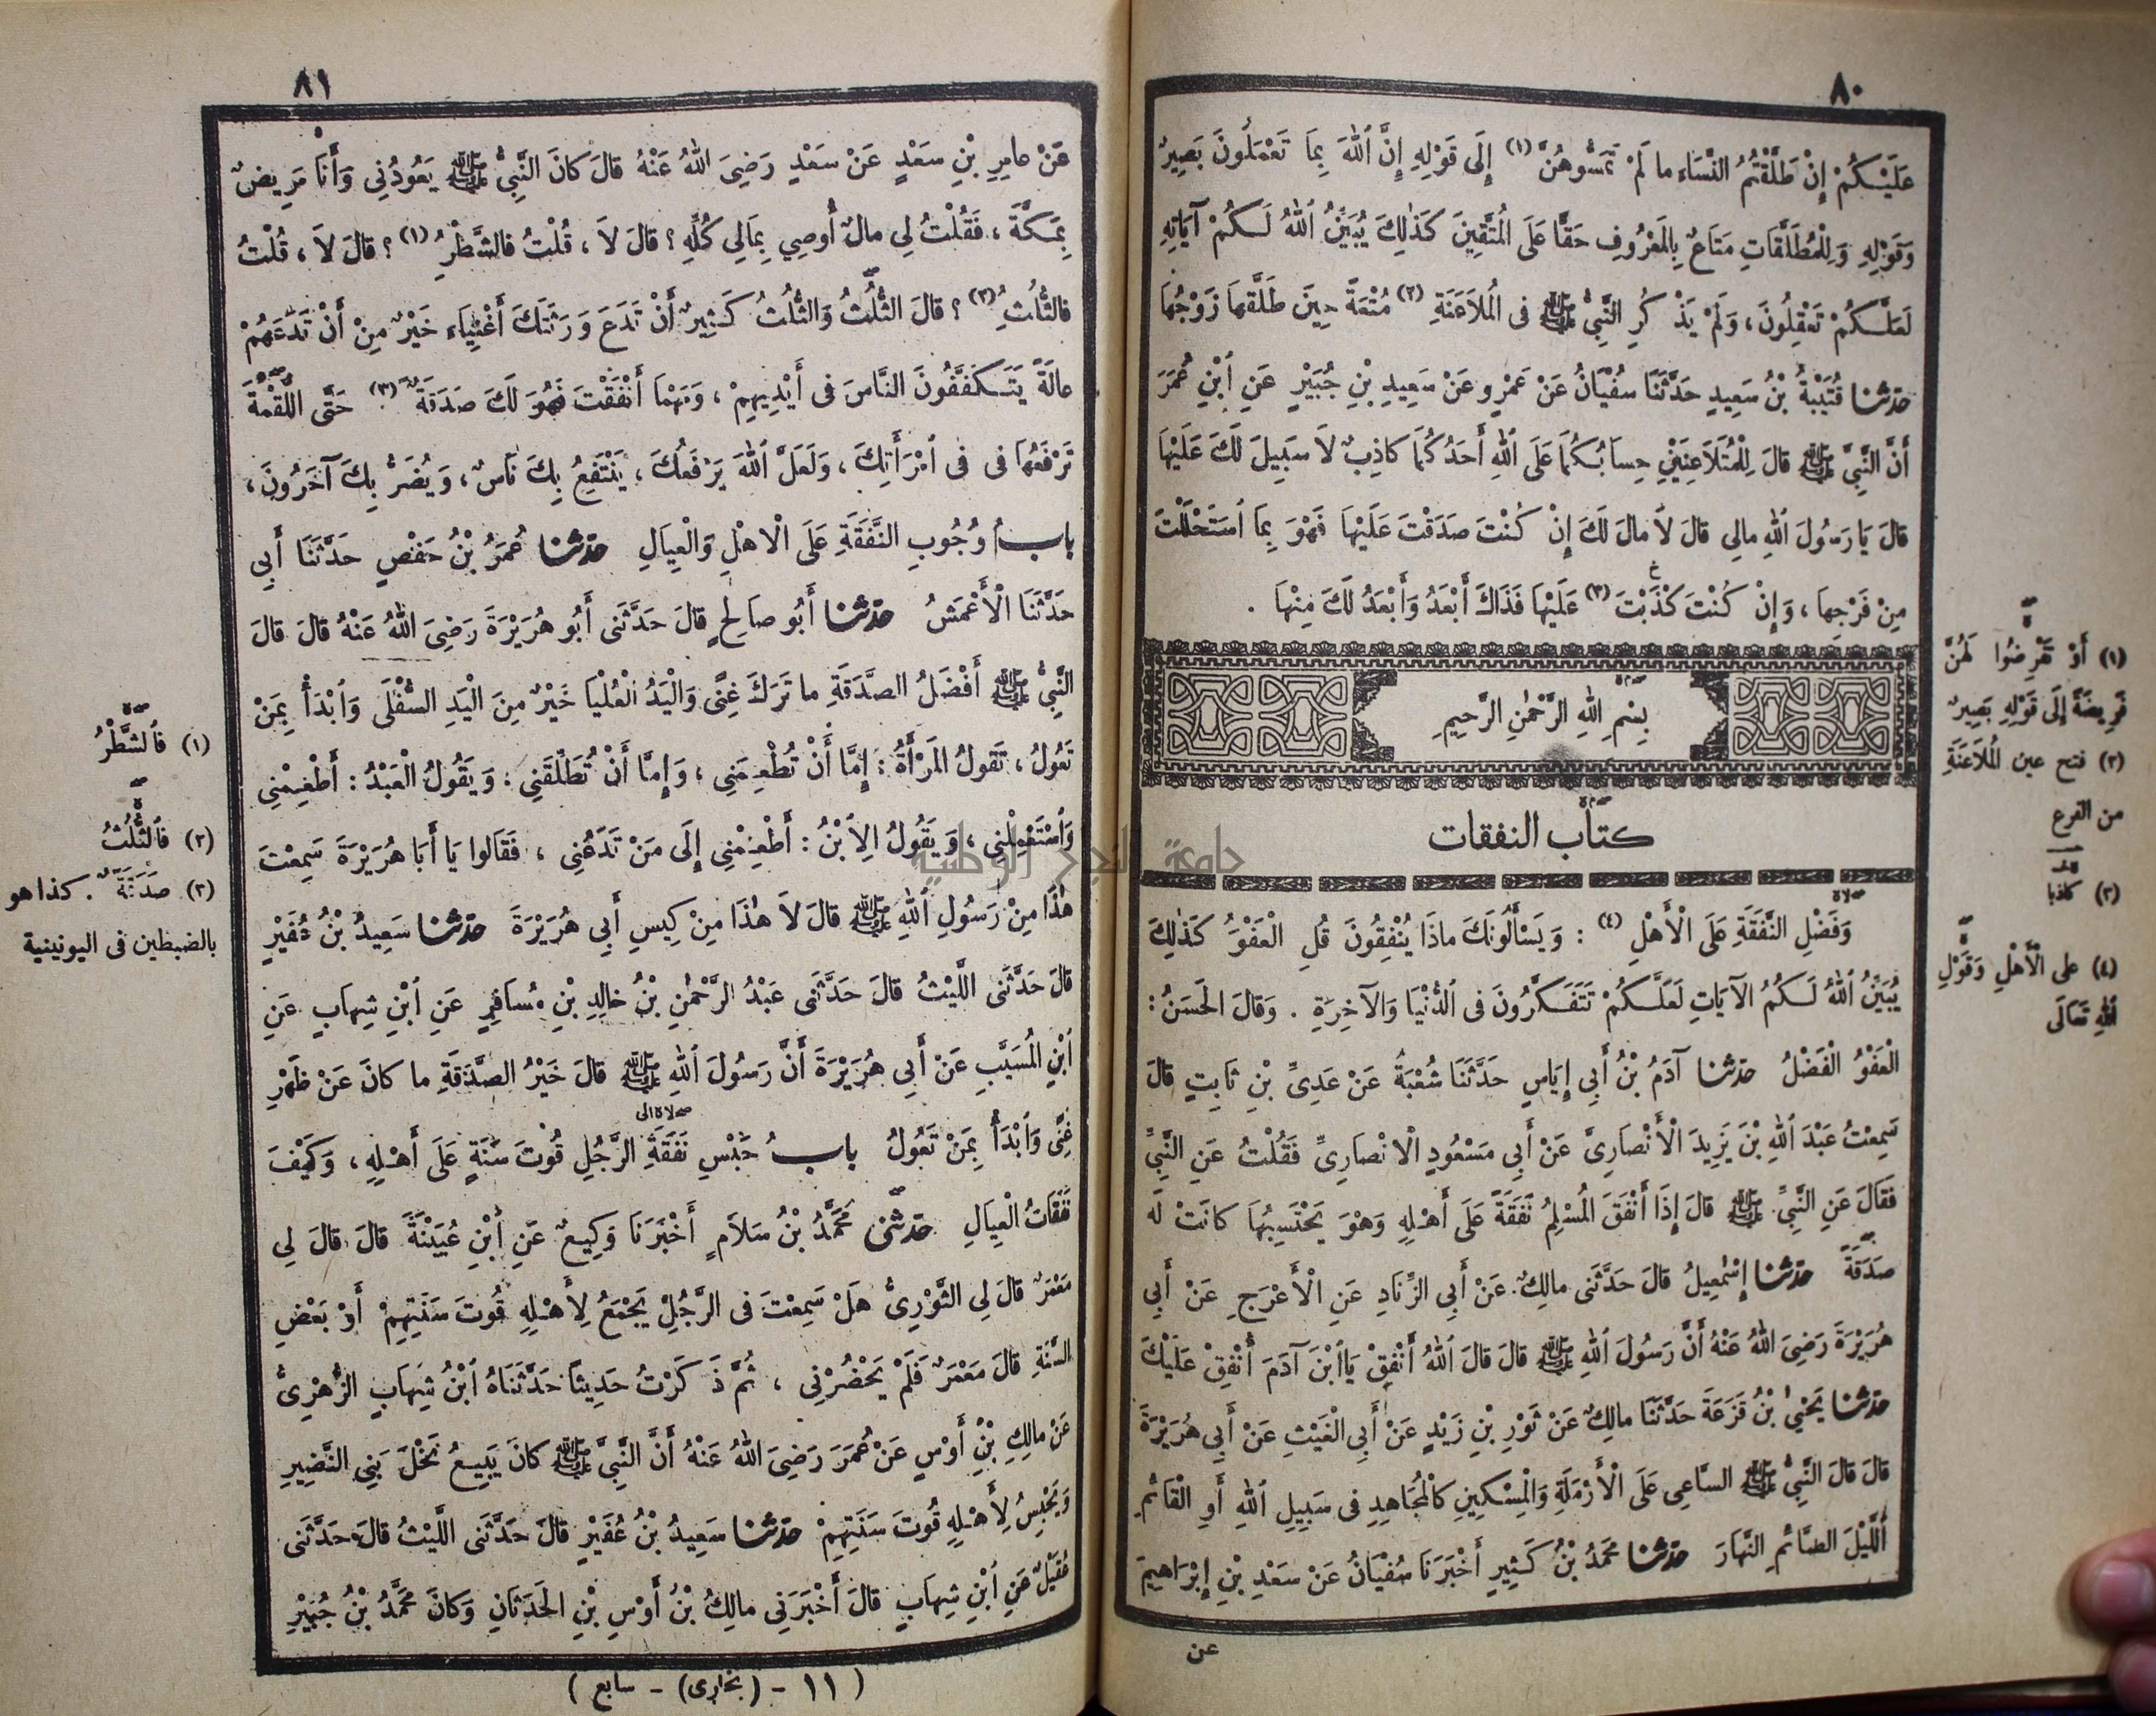 ٨٠
عَلَيْكُمْ إِنْ طَلَّقْتُمُ النِّسَاءَ ما لَمْ تَمَسُّوهُنَّ (١) إِلَى قَوْلِهِ إِنَّ اللهَ بِمَا تَعْمَلُونَ بَصِيرٌ
وَقَوْلِهِ وَلِلْمُطَلَّقَاتِ مَتَاعٌ بِالْمَعْرُوفِ حَقًّا عَلَى الْمُتَّقِينَ كَذٰلِكَ يُبَيِّنُ اللهُ لَكُمْ آيَاتِهِ
لَعَلَّكُمْ تَعْقِلُونَ، وَلَمْ يَذْكُرِ النَّبِيُّ ﷺ فى الْمُلاَعَنَةِ (٢) مُتْعَةً حِينَ طَلَّقَهَا زَوْجُهَا
حدثنا قُتَيْبَةُ بْنُ سَعِيدٍ حَدَّثَنَا سُفْيَانُ عَنْ عَمْرٍو عَنْ سَعِيدِ بْنِ جُبَيْرٍ عَنِ ابْنِ عُمَرَ
أَنَّ النَّبِيَّ ﷺ قالَ لِلْمُتَلاَعِنَيْنِ حِسَابُكُمَا عَلَى اللهِ أَحَدُكُمَا كاذِبٌ لاَ سَبِيلَ لَكَ عَلَيْهَا
قالَ يَا رَسُولَ اللهِ مالِى قالَ لاَ مالَ لَكَ إِنْ كُنْتَ صَدَقْتَ عَلَيْهَا فَهْوَ بِمَا اسْتَحْلَلْتَ
مِنْ فَرْجِهَا، وَإِنْ كُنْتَ كَذَبْتَ (٣) عَلَيْهَا فَذَاكَ أَبْعَدُ وَأَبْعَدُ لَكَ مِنْهَا .
بِسْمِ اللهِ الرَّحْمٰنِ الرَّحِيمِ
كتاب النفقات
وَفَضْلِ النَّفَقَةِ عَلَى الْأَهْلِ (٤) : وَيَسْأَلُونَكَ ماذَا يُنْفِقُونَ قُلِ الْعَفْوُ كَذٰلِكَ
يُبَيِّنُ اللهُ لَكُمُ الآيَاتِ لَعَلَّكُمْ تَتَفَكَّرُونَ فى الدُّنْيَا وَالآخِرَةِ . وَقالَ الْحَسَنُ :
الْعَفْوُ الْفَضْلُ حدثنا آدَمُ بْنُ أَبِى إِيَاسٍ حَدَّثَنَا شُعْبَةُ عَنْ عَدِىِّ بْنِ ثَابِتٍ قالَ
سَمِعْتُ عَبْدَ اللهِ بْنَ يَزِيدَ الْأَنْصَارِىَّ عَنْ أَبِى مَسْعُودٍ الْانْصَارِىِّ فَقُلْتُ عَنِ النَّبِيِّ
فَقَالَ عَنِ النَّبِيِّ ﷺ قالَ إِذَا أَنْفَقَ الْمُسْلِمُ نَفَقَةً عَلَى أَهْلِهِ وَهْوَ يَحْتَسِبُهَا كانَتْ لَهُ
صَدَقَةً حدثنا إِسْمٰعِيلُ قالَ حَدَّثَنِى مالِكٌ عَنْ أَبِى الزِّنَادِ عَنِ الْأَعْرَجِ عَنْ أَبِى
هُرَيْرَةَ رَضِىَ اللهُ عَنْهُ أَنَّ رَسُولَ اللهِ ﷺ قالَ قالَ اللهُ أَنْفِقْ يَا ابْنَ آدَمَ أُنْفِقْ عَلَيْكَ
حدثنا يَحْيٰى بْنُ قَزَعَةَ حَدَّثَنَا مالِكٌ عَنْ ثَوْرِ بْنِ زَيْدٍ عَنْ أَبِى الْغَيْثِ عَنْ أَبِى هُرَيْرَةَ
قالَ قالَ النَّبِيُّ ﷺ السَّاعِى عَلَى الْأَرْمَلَةِ وَالْمِسْكِينِ كالْمُجَاهِدِ فى سَبِيلِ اللهِ أَوِ الْقَائمِ
اللَّيْلَ الصَّائمِ النَّهَارَ حدثنا مُحَمَّدُ بْنُ كَثِيرٍ أَخْبَرَنَا سُفْيَانُ عَنْ سَعْدِ بْنِ إِبْرَاهِيمَ
عن
(١) أَوْ تَفْرِضُوا لَهُنَّ
فَرِيضَةً إِلَى قَوْلِهِ بَصِيرٌ
(٢) فتح عين الْمُلاَعَنَةِ
من الفرع
(٣) كاذبا
(٤) على الْأَهْلِ وَقَوْلِ
اللهِ تَعَالَى
٨١
عَنْ عامِرِ بْنِ سَعْدٍ عَنْ سَعْدٍ رَضِىَ اللهُ عَنْهُ قالَ كانَ النَّبِيُّ ﷺ يَعُودُنِى وَأَنَا مَرِيضٌ
بِمَكَّةَ، فَقُلْتُ لِى مالٌ أُوصِى بِمَالِى كُلِّهِ؟ قالَ لاَ، قُلْتُ فالشَّطْرُ (١)؟ قالَ لاَ، قُلْتُ
فالثُّلُثُ (٢)؟ قالَ الثُّلُثُ وَالثُّلُثُ كَثِيرٌ أَنْ تَدَعَ وَرَثَتَكَ أَغْنِيَاءَ خَيْرٌ مِنْ أَنْ تَدَعَهُمْ
عالَةً يَتَكَفَّفُونَ النَّاسَ فى أَيْدِيهِمْ، وَمَهْمَا أَنْفَقْتَ فَهُوَ لَكَ صَدَقَةٌ (٣) حَتَّى اللُّقْمَةَ
تَرْفَعُهَا فى فى امْرَأَتِكَ، وَلَعَلَّ اللهَ يَرْفَعُكَ، يَنْتَفِعُ بِكَ نَاسٌ، وَيُضَرُّ بِكَ آخَرُونَ،
باب وُجُوبِ النَّفَقَةِ عَلَى الْاهْلِ وَالْعِيَالِ حدثنا عُمَرُ بْنُ حَفْصٍ حَدَّثَنَا أَبِى
حَدَّثَنَا الْأَعْمَشُ حدثنا أَبُو صَالِحٍ قالَ حَدَّثَنِى أَبُو هُرَيْرَةَ رَضِىَ اللهُ عَنْهُ قالَ قالَ
النَّبِيُّ ﷺ أَفْضَلُ الصَّدَقَةِ ما تَرَكَ غِنًى وَالْيَدُ الْعُلْيَا خَيْرٌ مِنَ الْيَدِ السُّفْلَى وَابْدَأْ بِمَنْ
تَعُولُ، تَقُولُ الْمَرْأَةُ: إِمَّا أَنْ تُطْعِمَنِى، وَإِمَّا أَنْ تُطَلِّقَنِى، وَيَقُولُ الْعَبْدُ: أَطْعِمْنِى
وَاسْتَعْمِلْنِى، وَيَقُولُ الاِبْنُ: أَطْعِمْنِى إِلَى مَنْ تَدَعُنِى، فَقَالُوا يَا أَبَا هُرَيْرَةَ سَمِعْتَ
هٰذَا مِنْ رَسُولِ اللهِ ﷺ قالَ لاَ هٰذَا مِنْ كِيسِ أَبِى هُرَيْرَةَ حدثنا سَعِيدُ بْنُ عُفَيْرٍ
قالَ حَدَّثَنِى اللَّيْثُ قالَ حَدَّثَنِى عَبْدُ الرَّحْمٰنِ بْنُ خالِدِ بْنِ مُسَافِرٍ عَنِ ابْنِ شِهَابٍ عَنِ
ابْنِ الْمُسَيَّبِ عَنْ أَبِى هُرَيْرَةَ أَنَّ رَسُولَ اللهِ ﷺ قالَ خَيْرُ الصَّدَقَةِ ما كانَ عَنْ ظَهْرِ
غِنًى وَابْدَأْ بِمَنْ تَعُولُ باب حَبْسِ نَفَقَةِ الرَّجُلِ قُوتَ سَنَةٍ عَلَى أَهْلِهِ، وَكَيْفَ
نَفَقَاتُ الْعِيَالِ حدثنى مُحَمَّدُ بْنُ سَلاَمٍ أَخْبَرَنَا وَكِيعٌ عَنِ ابْنِ عُيَيْنَةَ قالَ قالَ لِى
مَعْمَرٌ قالَ لِى الثَّوْرِىُّ هَلْ سَمِعْتَ فى الرَّجُلِ يَجْمَعُ لِأَهْلِهِ قُوتَ سَنَتِهِمْ أَوْ بَعْضِ
السَّنَةِ قالَ مَعْمَرٌ فَلَمْ يَحْضُرْنِى، ثُمَّ ذَكَرْتُ حَدِيثًا حَدَّثَنَاهُ ابْنُ شِهَابٍ الزُّهْرِىُّ
عَنْ مالِكِ بْنِ أَوْسٍ عَنْ عُمَرَ رَضِىَ اللهُ عَنْهُ أَنَّ النَّبِيَّ ﷺ كانَ يَبِيعُ نَخْلَ بَنِى النَّضِيرِ
وَيَحْبِسُ لِأَهْلِهِ قُوتَ سَنَتِهِمْ حدثنا سَعِيدُ بْنُ عُفَيْرٍ قالَ حَدَّثَنِى اللَّيْثُ قالَ حَدَّثَنِى
عُقَيْلٌ عَنِ ابْنِ شِهَابٍ قالَ أَخْبَرَنِى مالِكُ بْنُ أَوْسِ بْنِ الْحَدَثَانِ وَكانَ مُحَمَّدُ بْنُ جُبَيْرِ
(١) فَالشَّطْرُ
(٢) فَالثُّلُثُ
(٣) صَدَقَةٌ . كذا هو
بالضبطين فى اليونينية
( ١١ - (بخارى) - سابع )
جامعة النجاح الوطنية